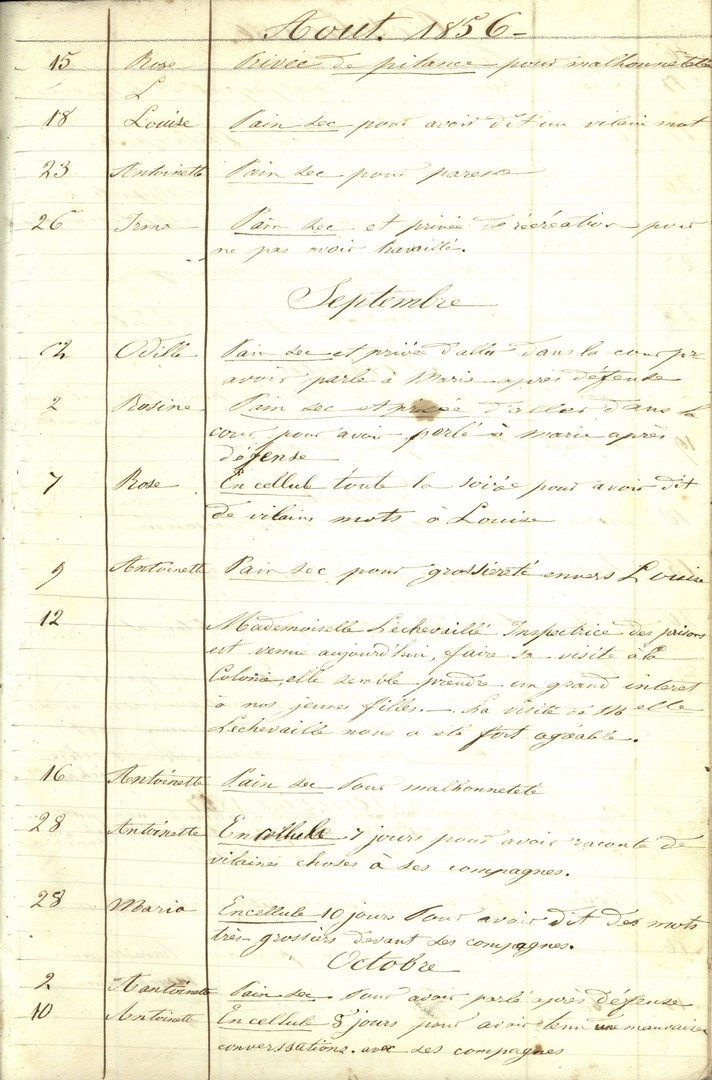 Aout. 1856-
15 Rose Privée de pitance pour malhonneteté
L
18 Louise Pain sec pour avoir dit un vilain mot
23 Antoinette Pain sec pour paresse
26 Irma Pain sec et privée de récréation pour
ne pas avoir travaillé.
Septembre
Odille Pain sec et privée d'aller dans la cour pr
avoir parlé à Marie après défense
2 Rosine Pain sec et privée d'aller dans la
cour pour avoir parlé à marie après
défense
7 Rose En cellule toute la soirée pour avoir dit
de vilains mots à Louise
9 Antoinette Pain sec pour grossiereté envers Louise
12 Mademoiselle Lechevaillé Inspectrice des prisons
est venue aujourd'hui, faire sa visite à la
Colonie, elle semble prendre un grand interet
à nos jeunes filles. - La visite de Melle
Lechevaille nous a été fort agéable.
16 Antoinette Pain sec Pour malhonneteté
28 Antoinette En cellule 7 jours pour avoir raconté de
vilaines choses à ses compagnes.
28 Maria En cellule 10 jours Pour avoir dit des mots
très grossiers devant ses compagnes.
Octobre
2 Aantoinette Pain sec. Pour avoir parlé après défense
10 Antoinette En cellule 8 jours pour avoir tenu une mauvaise
conversations. avec ses compagnes